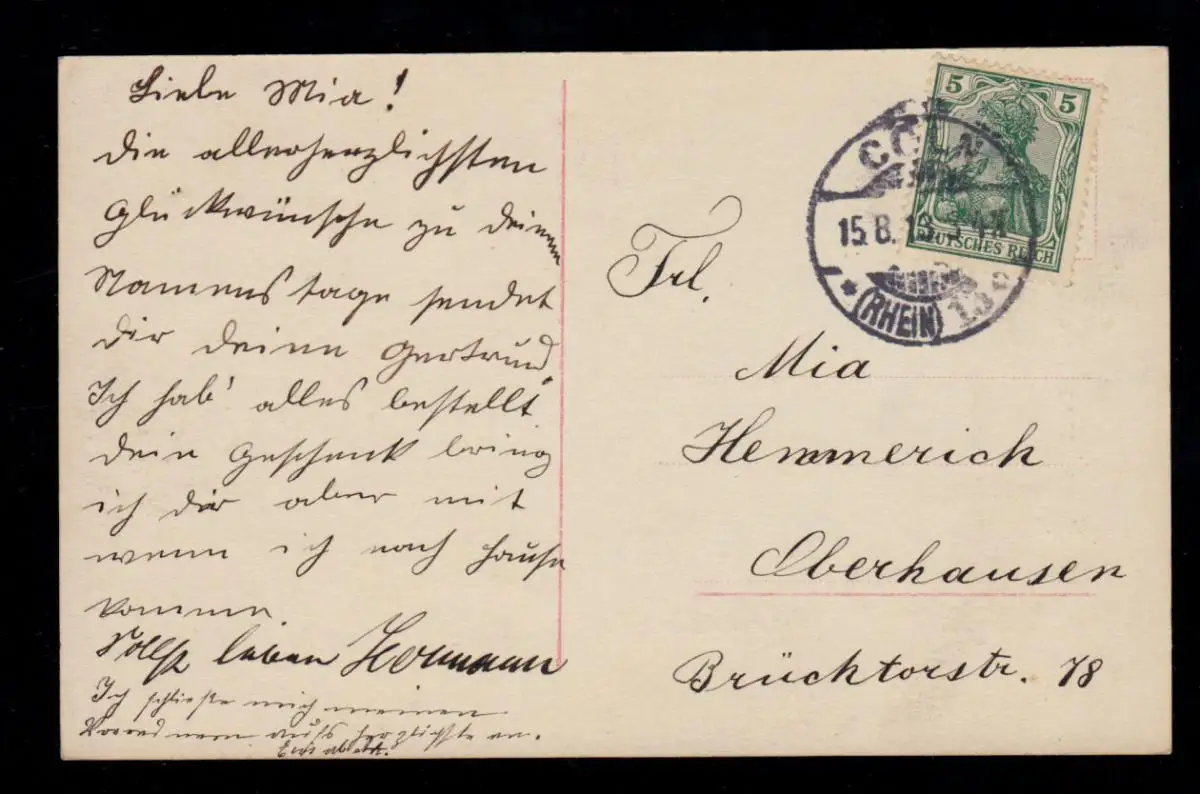 Liebe Mia!
die allerherzlichsten
Glückwünsche zu deinem
Namenstage sendet
dir deine Gertrud.
Ich hab' alles bestellt
dein Geschenk bring
ich dir aber mit
wenn ich nach Hause
komme.
Sollst leben Hermann
Ich schließe mich meinen
aufs herzlichste an.
5 5
DEUTSCHES REICH
CÖLN
15.8.13.
(RHEIN)
Frl.
Mia
Hemmerich
Oberhausen
Brücktorstr. 78